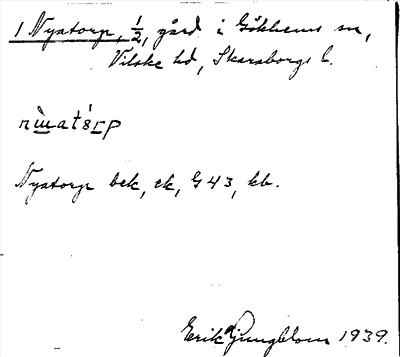 1 Nyatorp, 1/2, gård i Gökhems sn,
Vilske hd, Skaraborgs l.
Nyatorp bek, ek, G 43, kb.
Erik Ljungblom 1939.